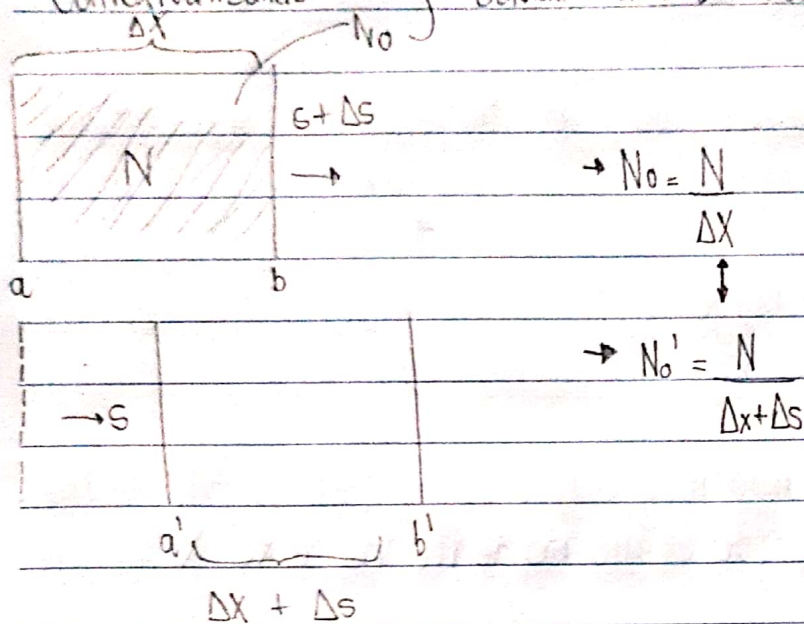 ΔX
N₀
s + Δs
N → → N₀ = N / ΔX
a b ↕
→ N₀' = N / Δx+Δs
→ s
a' b'
ΔX + Δs